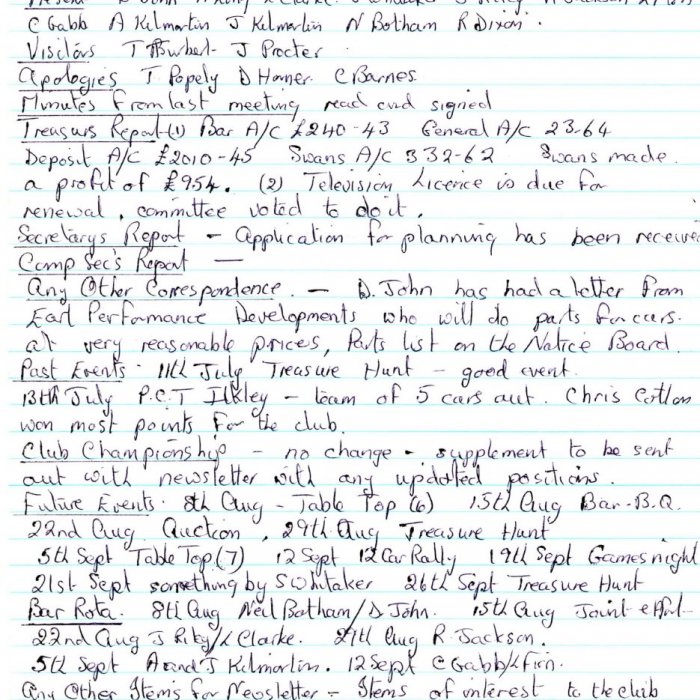 C Gabb A Kilmartin J Kilmartin N Botham R Dixon.
Visitors T Burket- J Procter
Apologies T Popely D Horner C Barnes
Minutes from last meeting read and signed
Treasurs Report (1) Bar A/C £240-43 General A/C 23-64
Deposit A/C £2010-45 Swans A/C 332-62 Swans made
a profit of £954. (2) Television Licence is due for
renewal, committee voted to do it.
Secretarys Report - Application for planning has been receive
Comp Sec's Report —
Any Other Correspondence. — D. John has had a letter from
East Performance Developments who will do parts for cars.
at very reasonable prices, Parts list on the Notice Board.
Past Events. 11th July Treasure Hunt - good event.
13th July P.C.T Ilkley - team of 5 cars out. Chris Cotton
won most points for the club.
Club Championship - no change - supplement to be sent
out with newsletter with any updated positions.
Future Events. 8th Aug - Table Top (6) 15th Aug Bar-B.Q.
22nd Aug Auction, 29th Aug Treasure Hunt
5th Sept Table Top (7) 12 Sept 12 Car Rally 19th Sept Games night
21st Sept something by S Whitaker 26th Sept Treasure Hunt
Bar Rota. 8th Aug Neil Botham/D John. 15th Aug Joint effort
22nd Aug J Riley/L Clarke. 29th Aug R. Jackson.
5th Sept A and J Kilmartin. 12 Sept C Gabb/K Finn.
Any Other Items for Newsletter - Items of interest to the club